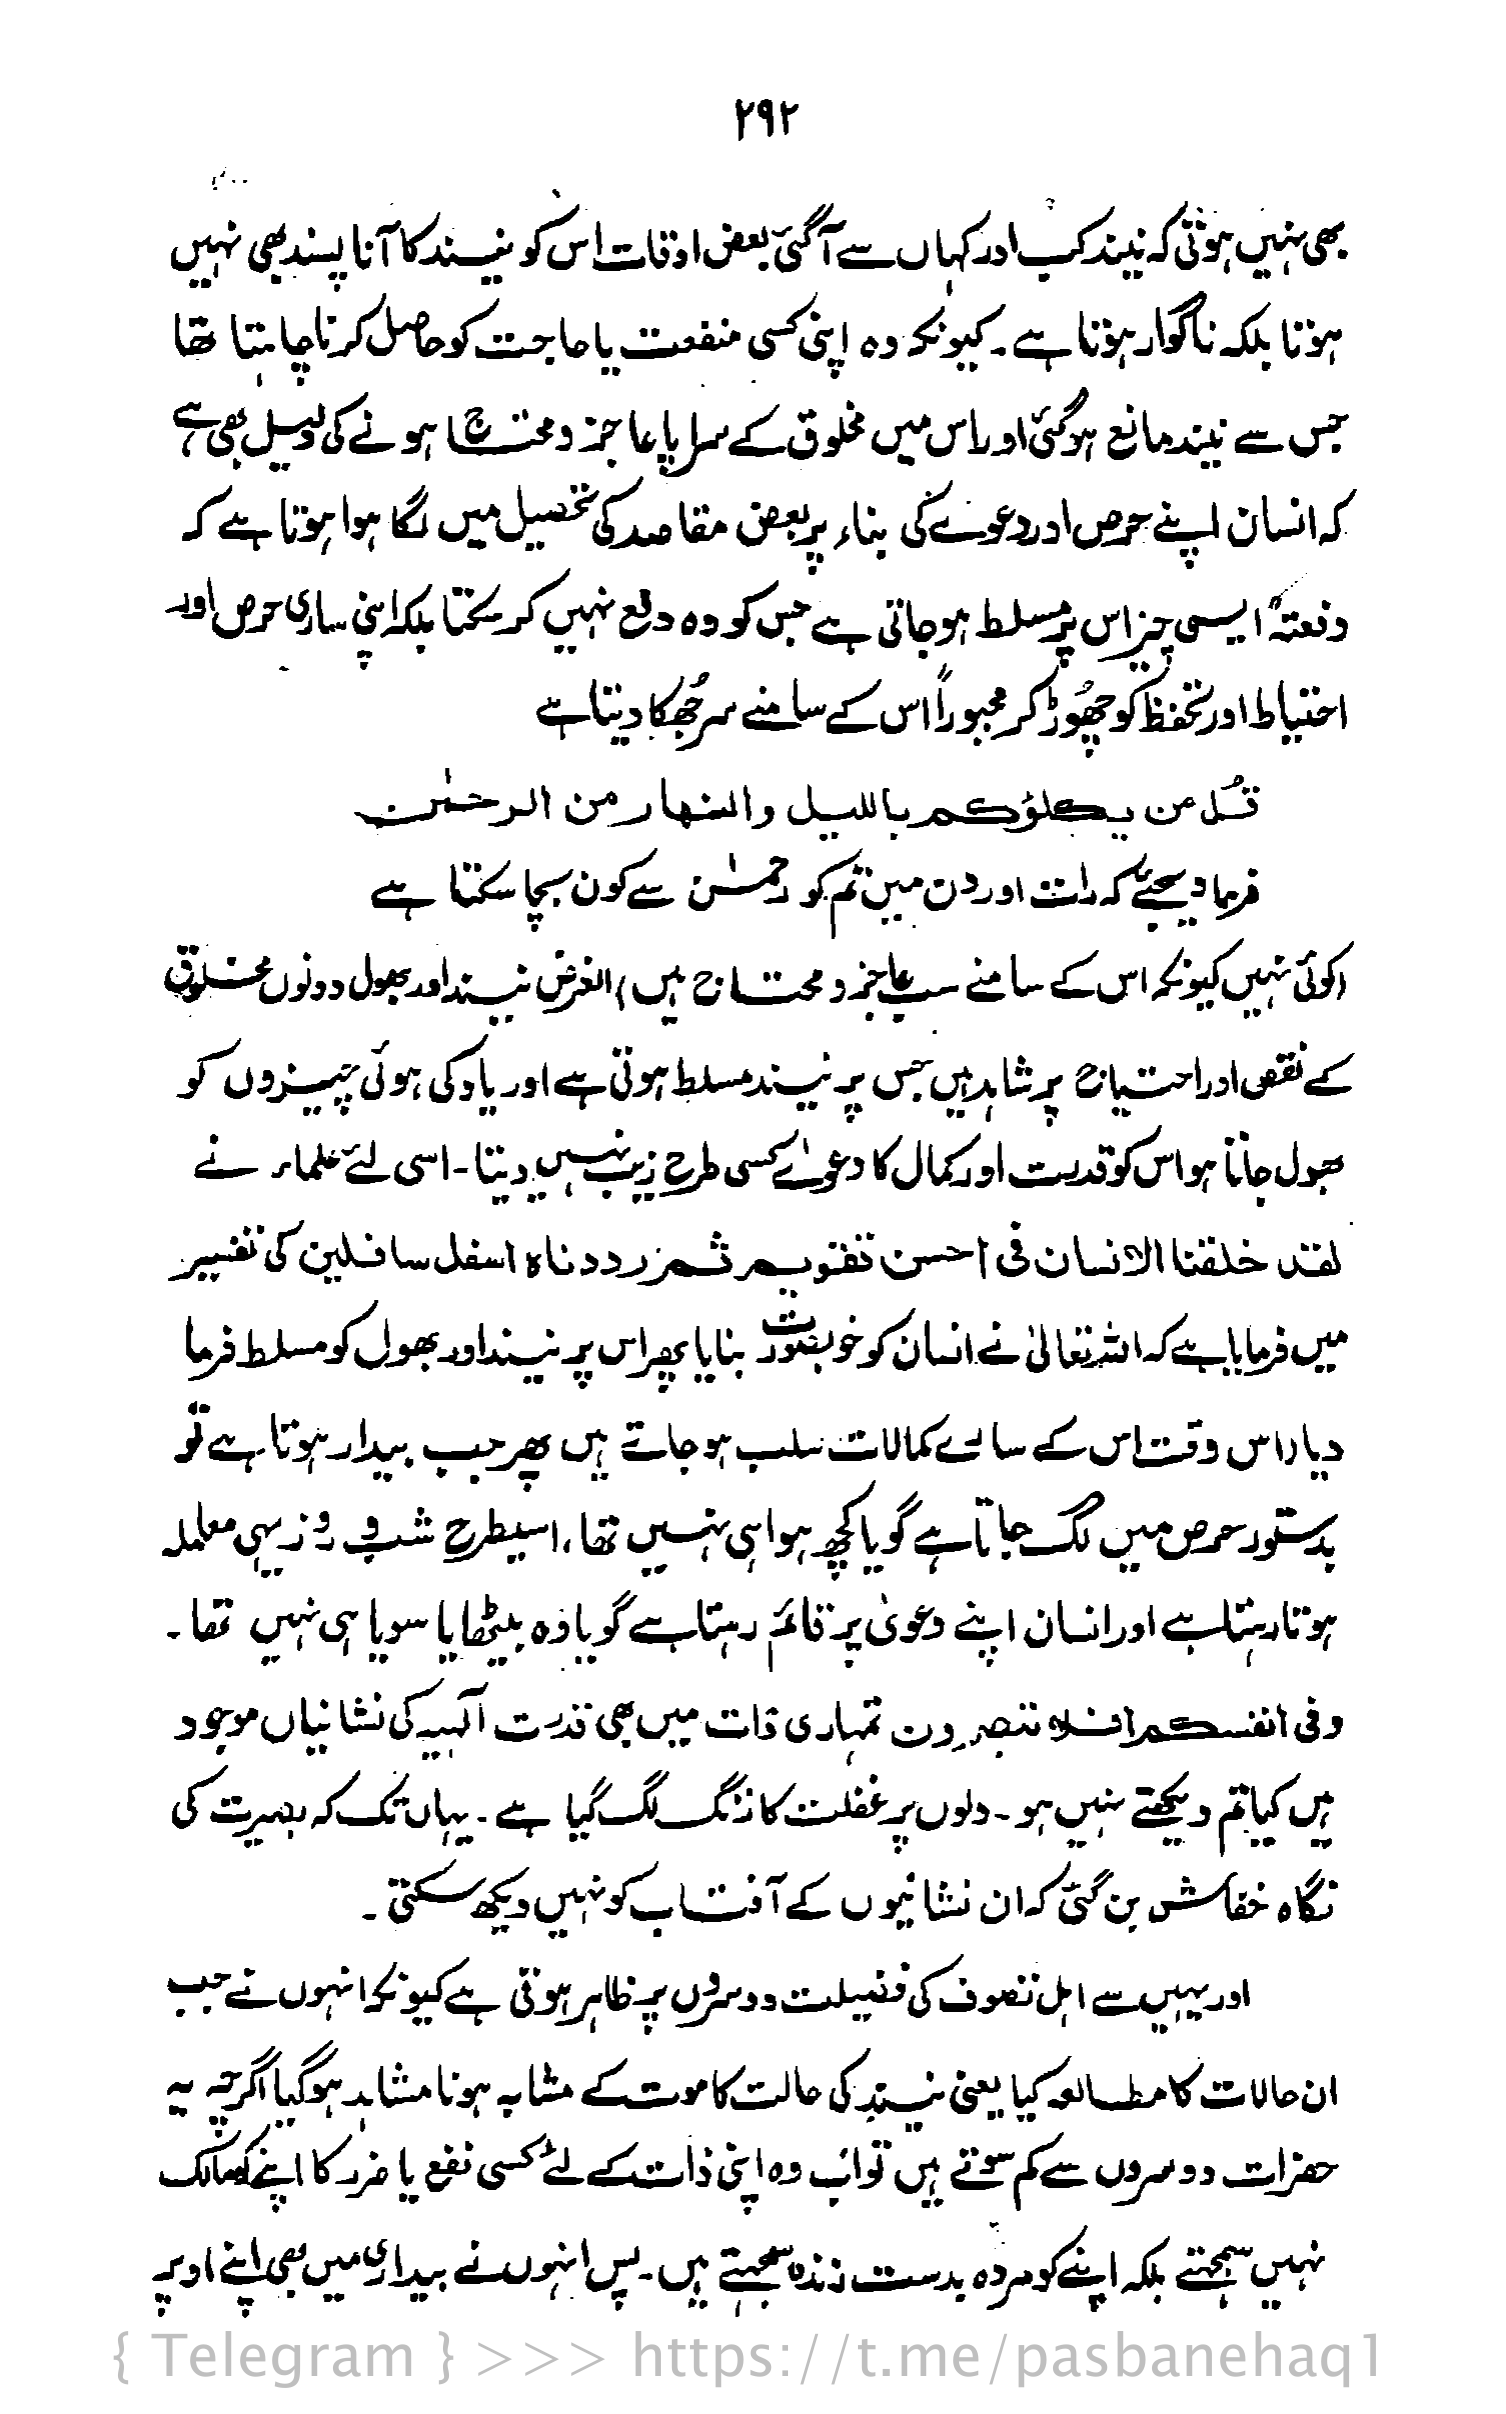 ۲۹۲
بھی نہیں ہوتی کہ نیند کب اور کہاں سے آگئی بعض اوقات اس کو نیند کا آنا پسند بھی نہیں
ہوتا بلکہ ناگوار ہوتا ہے۔ کیونکہ وہ اپنی کسی منفعت یا حاجت کو حاصل کرنا چاہتا تھا
جس سے نیند مانع ہوگئی اور اس میں مخلوق کے سراپا عاجز و محتاج ہونے کی دلیل بھی ہے
کہ انسان اپنے حرص اور دعوے کی بناء پر بعض مقاصد کی تحصیل میں لگا ہوا ہوتا ہے کہ
دفعتہً ایسی چیز اس پر مسلط ہوجاتی ہے جس کو وہ دفع نہیں کر سکتا بلکہ اپنی ساری حرص اور
احتیاط اور تحفظ کو چھوڑ کر مجبوراً اس کے سامنے سر جُھکا دیتا ہے
قُل من یکلؤکم باللیل والنھار من الرحمٰن
فرما دیجئے کہ رات اور دن میں تم کو رحمٰن سے کون بچا سکتا ہے
(کوئی نہیں کیونکہ اس کے سامنے سب عاجز و محتاج ہیں) الغرض نیند اور بھول دونوں مخلوق
کے نقص اور احتیاج پر شاہد ہیں جس پر نیند مسلط ہوتی ہے اور یاد کی ہوئی چیزوں کو
بھول جاتا ہو اس کو قدرت اور کمال کا دعوےٰ کسی طرح زیب نہیں دیتا۔ اسی لئے علماء نے
لقد خلقنا الانسان فی احسن تقویم ثم رددناہ اسفل سافلین کی تفسیر
میں فرمایا ہے کہ اللہ تعالیٰ نے انسان کو خوبصورت بنایا پھر اس پر نیند اور بھول کو مسلط فرما
دیا (اس وقت اس کے سارے کمالات سلب ہو جاتے ہیں پھر جب بیدار ہوتا ہے تو
بدستور حرص میں لگ جاتا ہے گویا کچھ ہوا ہی نہیں تھا، اسیطرح شب و روز یہی معاملہ
ہوتا رہتا ہے اور انسان اپنے دعویٰ پر قائم رہتا ہے گویا وہ بیٹھا یا سویا ہی نہیں تھا۔
وفی انفسکم افلا تبصرون تمہاری ذات میں بھی قدرت آلٰہیہ کی نشانیاں موجود
ہیں کیا تم دیکھتے نہیں ہو۔ دلوں پر غفلت کا زنگ لگ گیا ہے۔ یہاں تک کہ بصیرت کی
نگاہ خفاش بن گئی کہ ان نشانیوں کے آفتاب کو نہیں دیکھ سکتی۔
اور یہیں سے اہل تصوف کی فضیلت دوسروں پر ظاہر ہوتی ہے کیونکہ انہوں نے جب
ان حالات کا مطالعہ کیا یعنی نیند کی حالت کا موت کے مشابہ ہونا مشاہد ہوگیا اگرچہ یہ
حضرات دوسروں سے کم سوتے ہیں تو اب وہ اپنی ذات کے لئے کسی نفع یا ضرر کا اپنے کو مالک
نہیں سمجھتے بلکہ اپنے کو مردہ بدست زندہ سمجھتے ہیں۔ پس انہوں نے بیداری میں بھی اپنے اوپر
{ Telegram } >>> https://t.me/pasbanehaq1